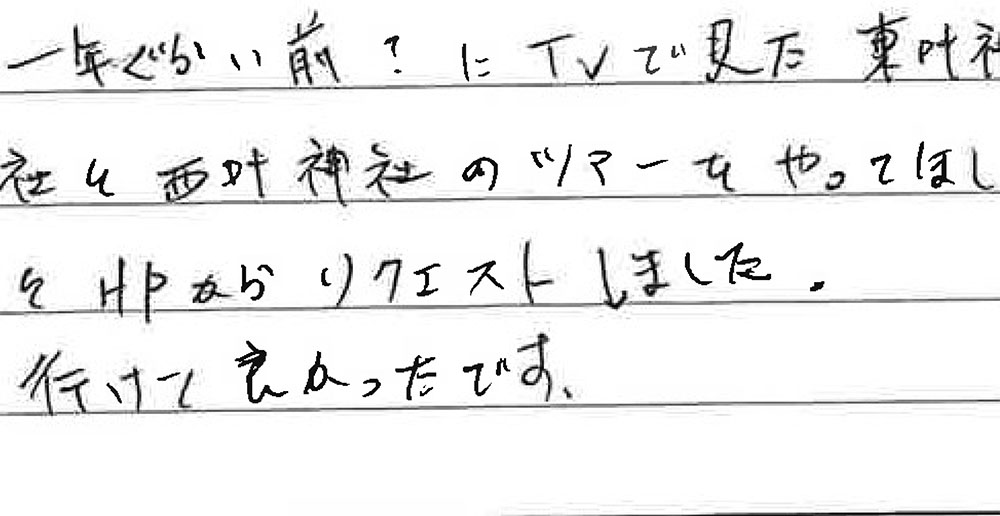 一年ぐらい前?にTVで見た 東叶神
社と西叶神社のツアーをやってほし
とHPからリクエストしました.
行けて良かったです、